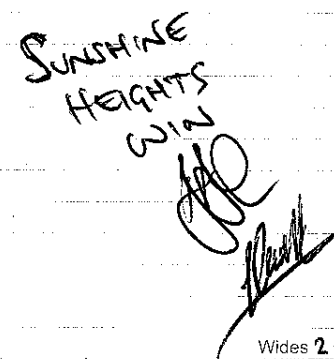 SUNSHINE
HEIGHTS
WIN
Wides 2